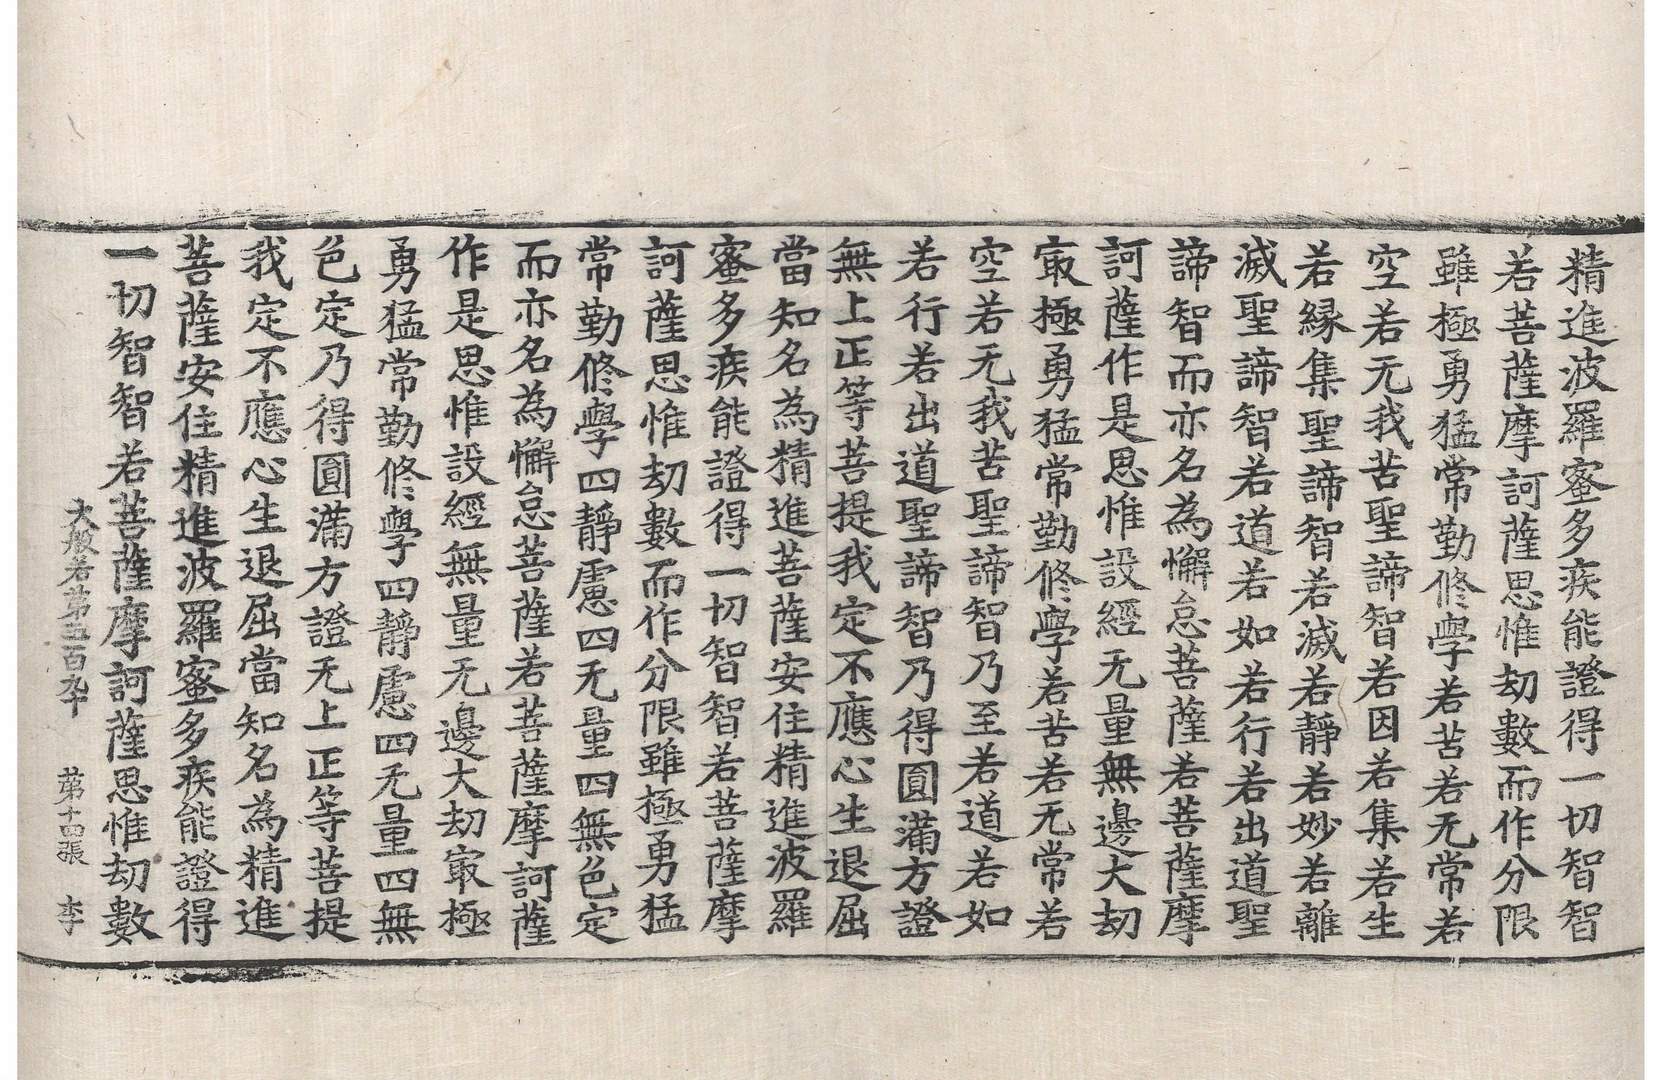 精進波羅蜜多疾能證得一切智智
若菩薩摩訶薩思惟劫數而作分限
雖極勇猛常勤修學若苦若无常若
空若无我苦聖諦智若因若集若生
若緣集聖諦智若滅若靜若妙若離
滅聖諦智若道若如若行若出道聖
諦智而亦名為懈怠菩薩若菩薩摩
訶薩作是思惟設經无量無邊大劫
㝡極勇猛常勤修學若苦若无常若
空若无我苦聖諦智乃至若道若如
若行若出道聖諦智乃得圓滿方證
無上正等菩提我定不應心生退屈
當知名為精進菩薩安住精進波羅
蜜多疾能證得一切智智若菩薩摩
訶薩思惟劫數而作分限雖極勇猛
常勤修學四靜慮四无量四無色定
而亦名為懈怠菩薩若菩薩摩訶薩
作是思惟設經無量无邊大劫㝡極
勇猛常勤修學四靜慮四无量四無
色定乃得圓滿方證无上正等菩提
我定不應心生退屈當知名為精進
菩薩安住精進波羅蜜多疾能證得
一切智智若菩薩摩訶薩思惟劫數
大般若第五百九十 第十四張 李